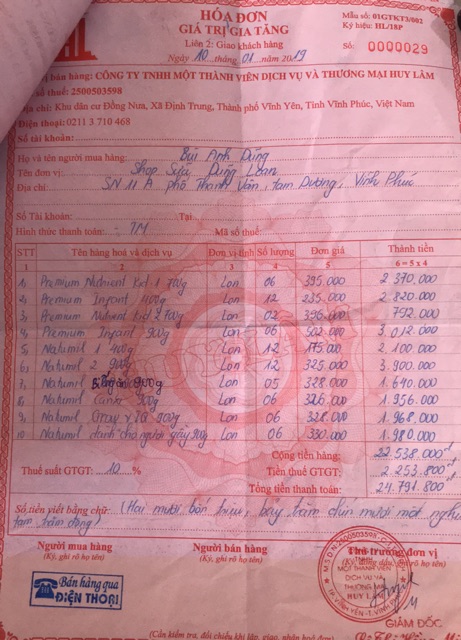 HÓA ĐƠN
GIÁ TRỊ GIA TĂNG
Liên 2: Giao khách hàng
Ngày 10 tháng 01 năm 2019
Mẫu số: 01GTKT3/002
Ký hiệu: HL/18P
Số: 0000029
bán hàng: CÔNG TY TNHH MỘT THÀNH VIÊN DỊCH VỤ VÀ THƯƠNG MẠI HUY LÂM
số thuế: 2500503598
Địa chỉ: Khu dân cư Đồng Nưa, Xã Định Trung, Thành phố Vĩnh Yên, Tỉnh Vĩnh Phúc, Việt Nam
Điện thoại: 0211 3 710 468
Số tài khoản:
Họ và tên người mua hàng: Bùi Anh Dũng
Tên đơn vị: Shop Sữa Dung Loan
Địa chỉ: SN 11 A phố Thanh Vân, Tam Dương, Vĩnh Phúc
Số Tài khoản: Tại
Hình thức thanh toán: TM Mã số thuế:
STT Tên hàng hoá và dịch vụ Đơn vị tính Số lượng Đơn giá Thành tiền
1 2 3 4 5 6 = 5 x 4
1) Premium Nutrient Kid 1 700g Lon 06 395.000 2 370.000
2) Premium Infant 400g Lon 12 235.000 2 820.000
3) Premium Nutrient Kid 2 700g Lon 02 396.000 792.000
4) Premium Infant 900g Lon 06 502.000 3.012.000
5) Natumil 1 400g Lon 12 175.000 2.100.000
6) Natumil 2 900g Lon 12 325.000 3.900.000
7) Natumil Biếng ăn 900g Lon 05 328.000 1.640.000
8) Natumil Canxi 900g Lon 06 326.000 1.956.000
9) Natumil Gray + IQ 900g Lon 06 328.000 1.968.000
10 Natumil dành cho người gầy 900g Lon 06 330.000 1.980.000
Cộng tiền hàng: 22.538.000
Thuế suất GTGT: 10 % Tiền thuế GTGT: 2 253.800
Tổng tiền thanh toán: 24.791.800
Số tiền viết bằng chữ: (Hai mươi bốn triệu, bảy trăm chín mươi mốt nghìn
tám trăm đồng)
Người mua hàng Người bán hàng Thủ trưởng đơn vị
(Ký, ghi rõ họ tên) (Ký, ghi rõ họ tên)
Bán hàng qua
ĐIỆN THOẠI
M.S.D.N: 2500503598
MỘT THÀNH VIÊN
DỊCH VỤ VÀ
THƯƠNG MẠI
HUY LÂM
GIÁM ĐỐC
(Cần kiểm tra, đối chiếu khi lập, giao, nhận hóa đơn)